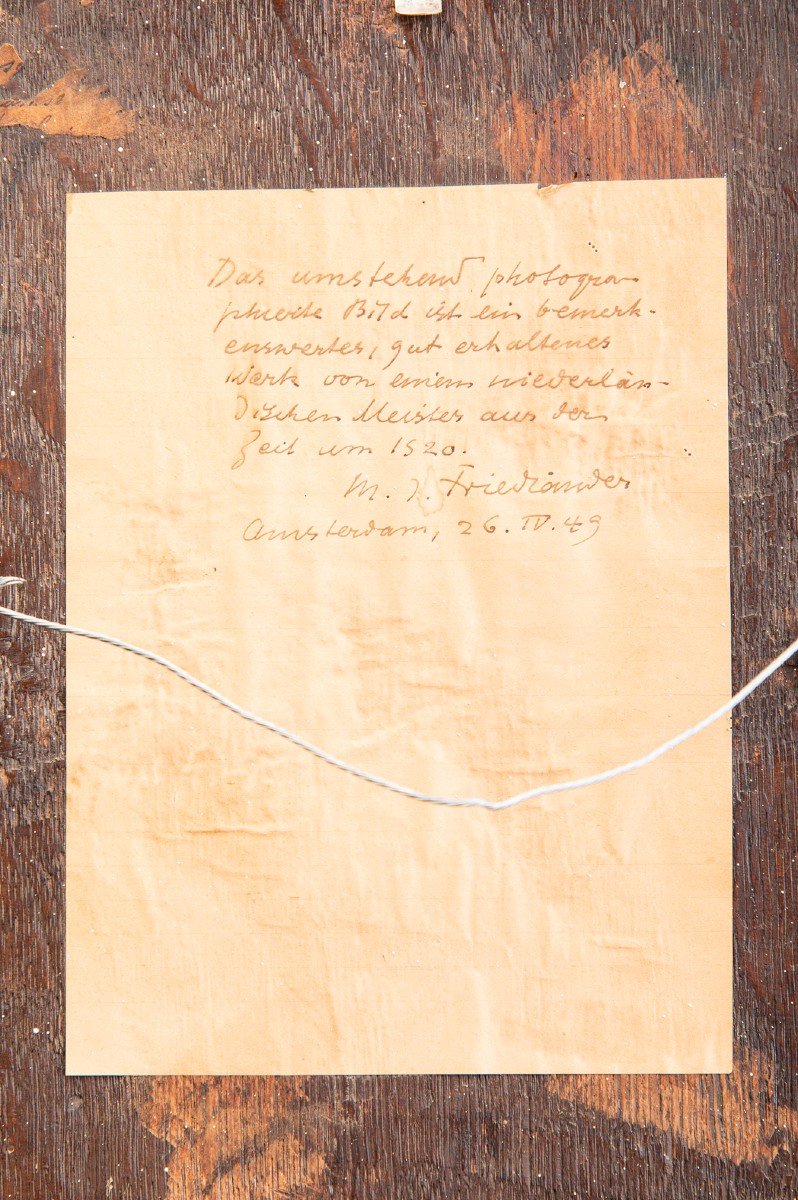 Das umstehend photogra-
phierte Bild ist ein bemerk-
enswertes, gut erhaltenes
Werk von einem niederlän-
dischen Meister aus der
Zeit um 1520.
M. J. Friedländer
Amsterdam, 26. IV. 49